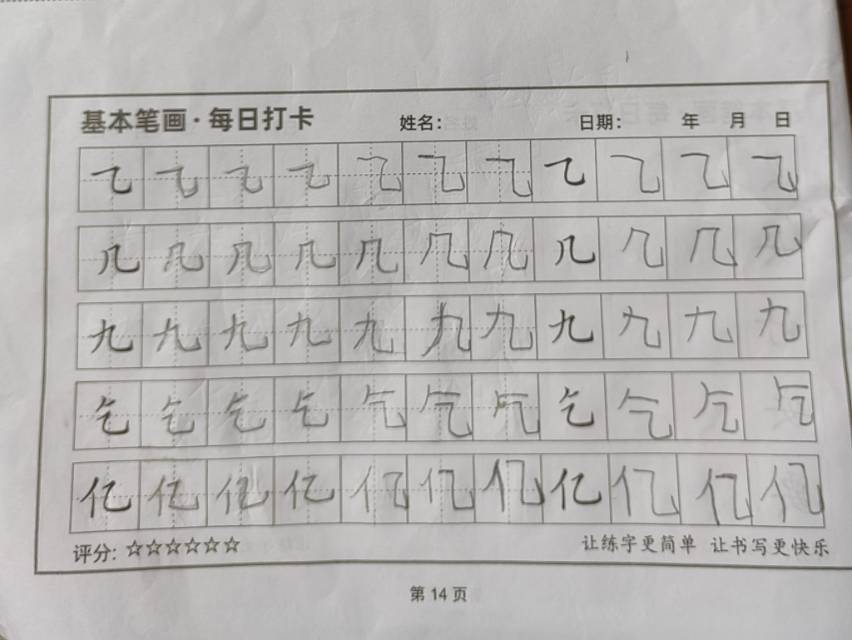 基本笔画·每日打卡 姓名: 日期: 年 月 日
乙 乙 乙 乙 乙 乙 乙 乙 乙 乙 乙
几 几 几 几 几 几 几 几 几 几 几
九 九 九 九 九 九 九 九 九 九 九
乞 乞 乞 乞 乞 乞 乞 乞 乞 乞 乞
亿 亿 亿 亿 亿 亿 亿 亿 亿 亿 亿
评分: ☆☆☆☆☆☆ 让练字更简单 让书写更快乐
第 14 页